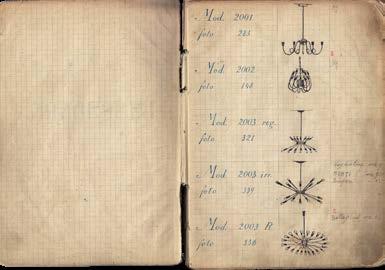 Mod. 2001
foto 283
Mod. 2002
foto 148
Mod. 2003 reg.
foto 321
Mod. 2003 irr.
foto 339
Mod. 2003 R
foto 336